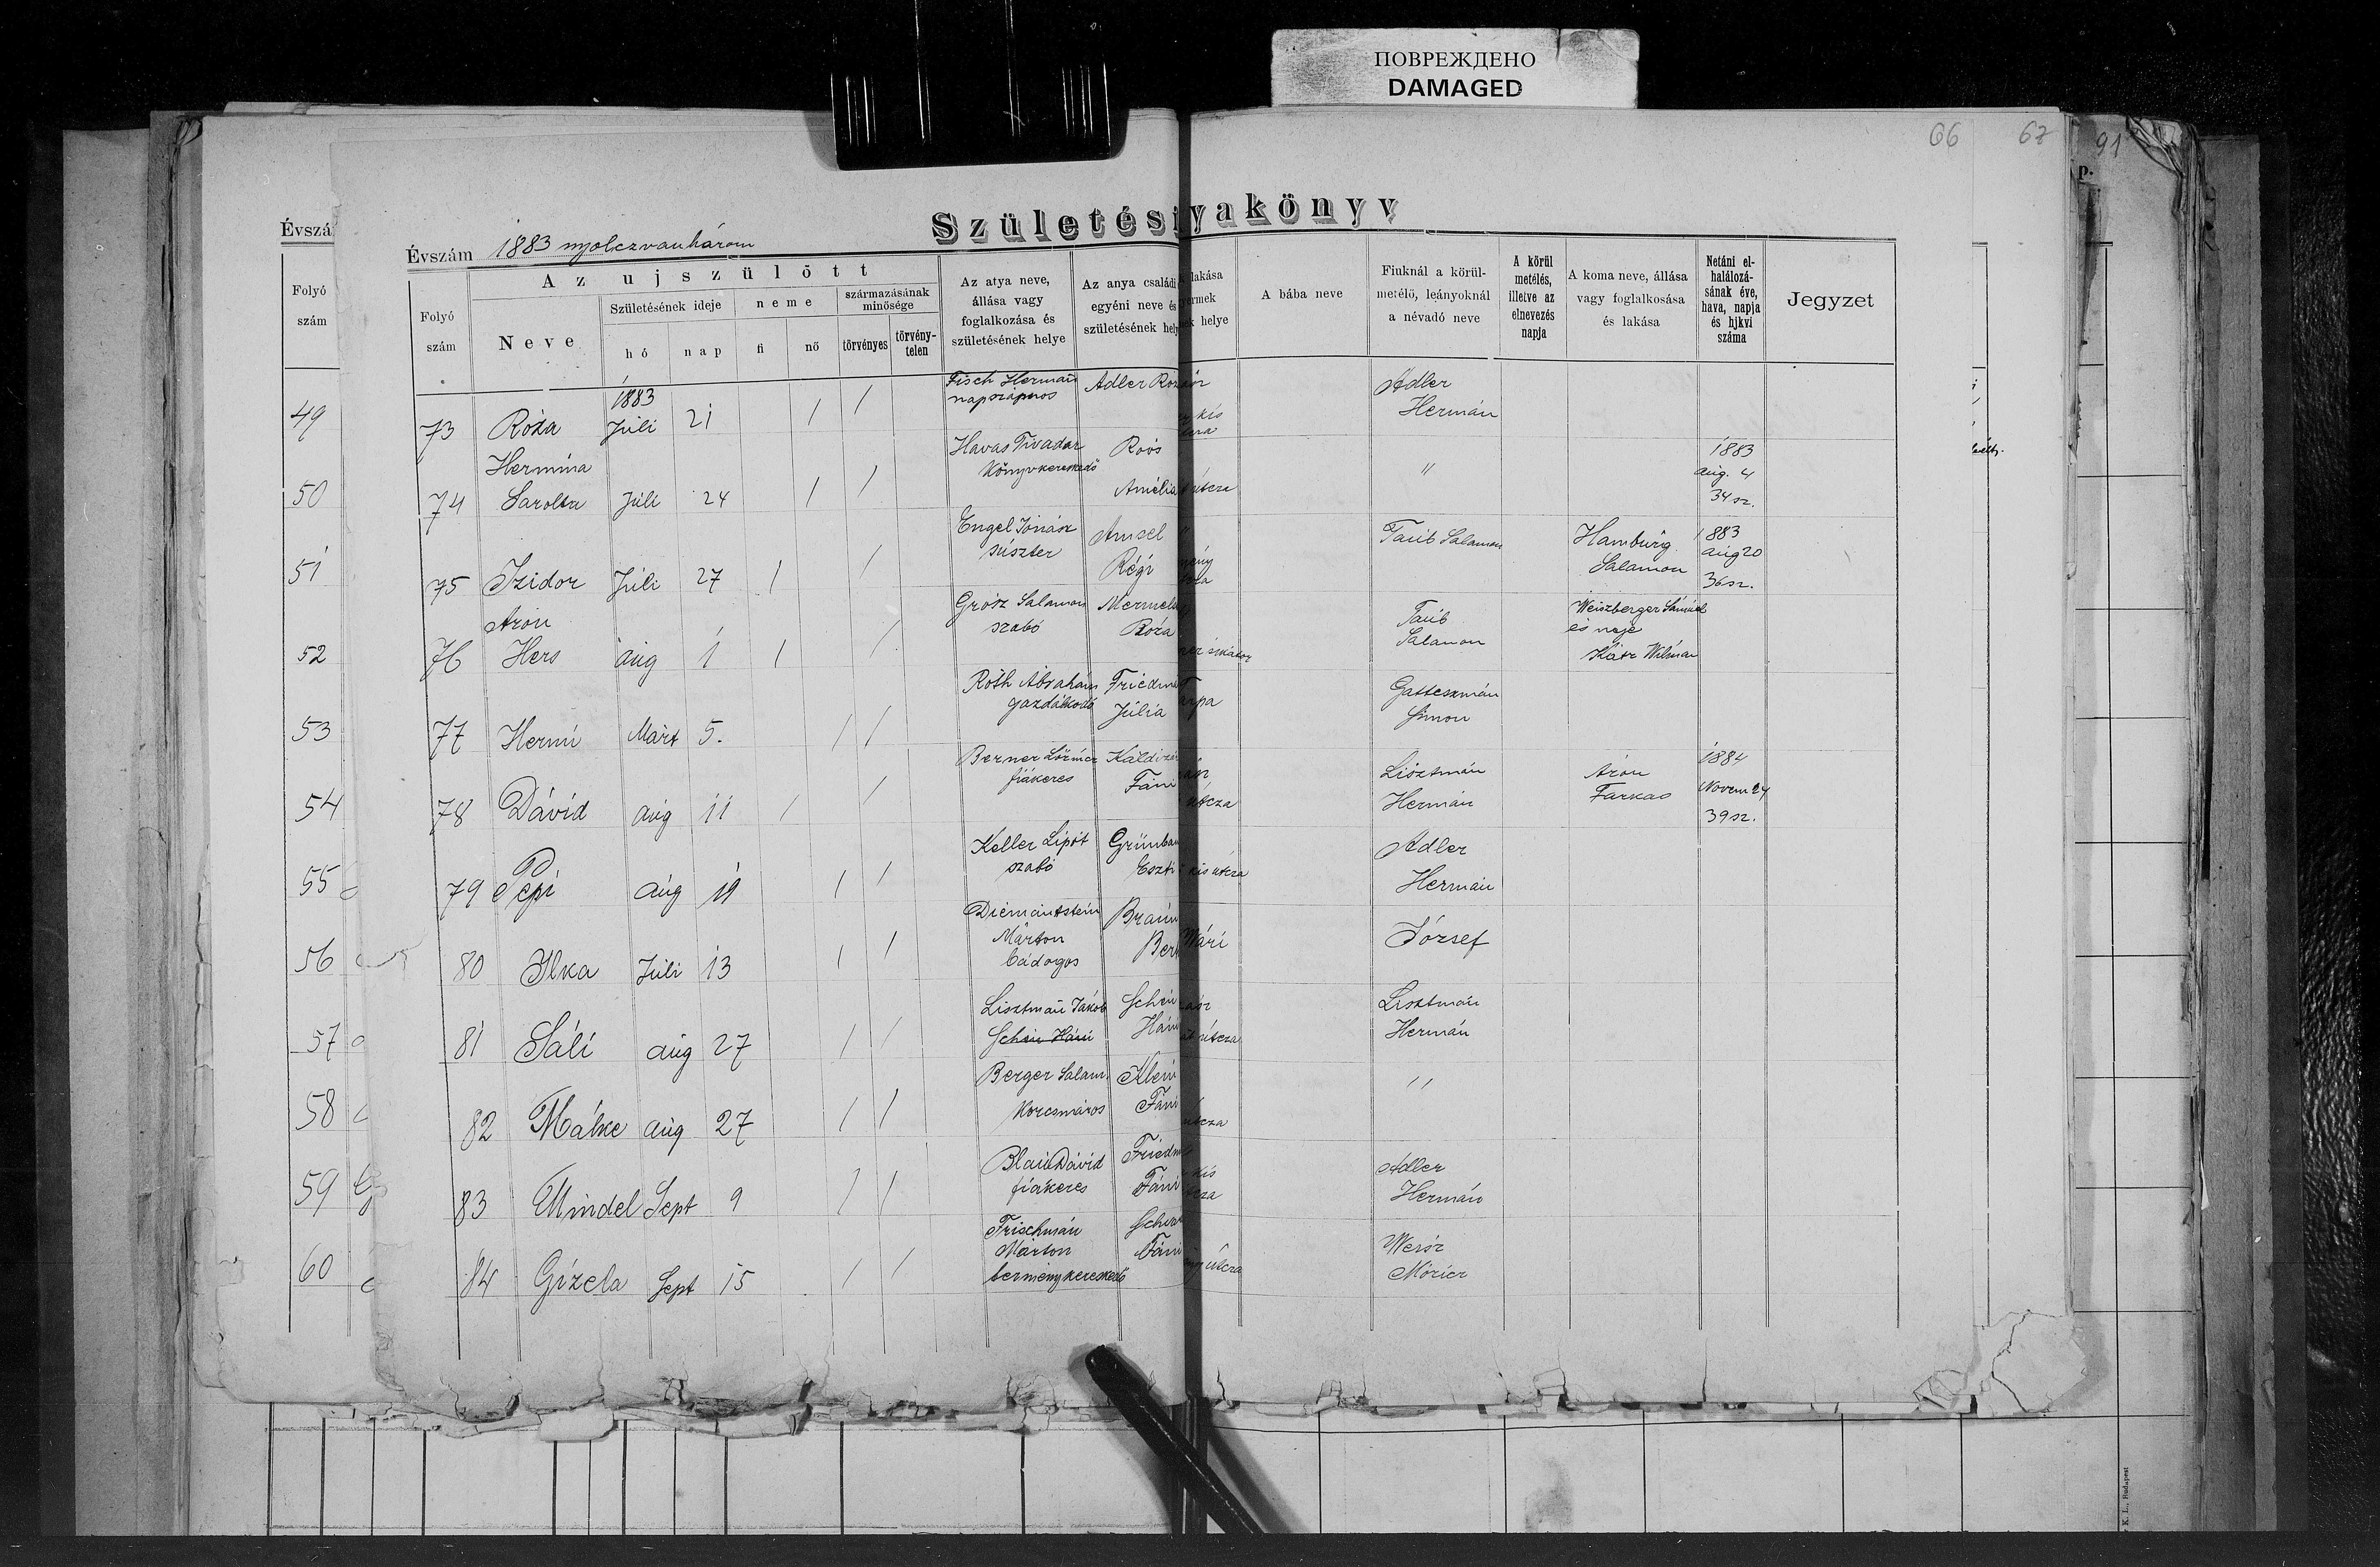 ПОВРЕЖДЕНО
DAMAGED
66 67 91
p.
Születési yakönyv
Évszá
Évszám 1883 nyolczvanhárom
Folyó
szám
Folyó szám
Az ujszülött
Neve
Születésének ideje
hó nap
neme
fi nő
származásának minősége
törvényes törvény-telen
Az atya neve, állása vagy foglalkozása és születésének helye
Az anya családi
egyéni neve és
születésének hely
lakása
yermek
ek helye
A bába neve
Fiuknál a körül-metélő, leányoknál a névadó neve
A körül metélés, illetve az elnevezés napja
A koma neve, állása vagy foglalkosása és lakása
Netáni el-halálozá-sának éve, hava, napja és hjkvi száma
Jegyzet
49
50
51
52
53
54
55
56
57
58
59
60
1883
73 Róza Júli 21 / / Fisch Hermán napszámos Adler Róz Adler Hermán
kis
74 Hermina Sarolta Júli 24 / / Havas Tivadar Könyvkereskedő Roós Amélia útcza " 1883 aug. 4 34 sz.
75 Izidor Júli 27 / / Engel Jónász súszter Amsel Régi " Taub Salamon Hamburg Salamon 1883 aug 20 36 sz.
76 Áron Hers aug 1 / / Grósz Salamon szabó Róza Taub Salamon Weiszberger Sámuel és neje Kátz Wilmán
77 Hermi Márt 5. / / Róth Ábrahám gazdálkodó Friedm Júlia Gatteszmán Simon
78 Dávid aug 11 / / Berner Lőrincz fiákeres Fáni útcza Lisztmán Hermán Áron Farkas 1884 Novem 24 39 sz.
79 Pepi aug 19 / / Keller Lipót szabó Grünba Eszti kis útcza Adler Hermán
80 Ilka Júli 13 / / Diemantstein Márton bádogos Braun Ber Wári József
81 Sáli aug 27 / / Lisztmán Jakób Schein Háni Schein Háni útcza Lisztmán Hermán
82 Málke aug 27 / / Berger Salam. Korcsmáros Klein Fáni útcza "
83 Mindel Sept 9 / / Blau Dávid fiákeres Friedm Fáni kis Adler Hermán
84 Gizela Sept 15 / / Frischmán Márton terménykereskedő Schva Fáni útcza Weisz Móricz
K. L., Budapest